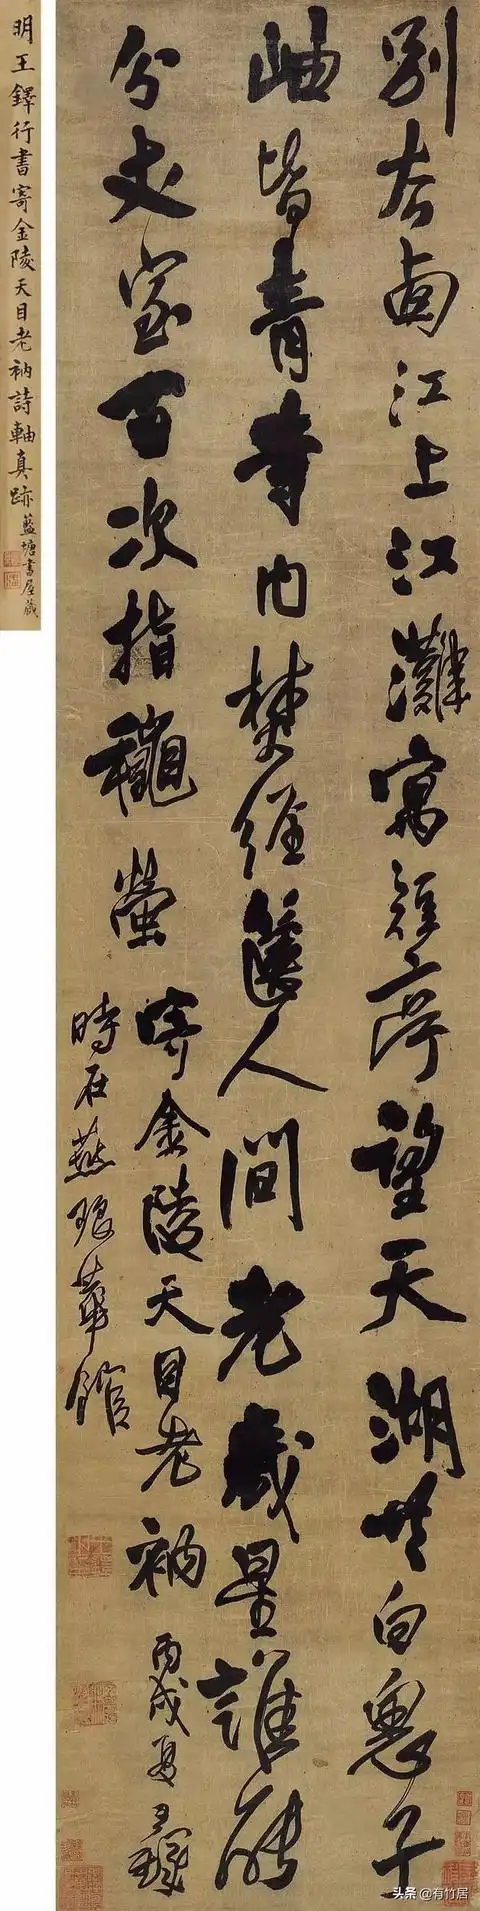 別卥江上江灘寓短亭望天湖共白恖子
岫皆青寺內梵經篋人間老歲星誰能
分丈室百次指龝螢
寄金陵天目老衲 丙戌夏王鐸
時在燕琅華館
明王鐸行書寄金陵天目老衲詩軸真跡 藍塘書屋藏
头条 @有竹居